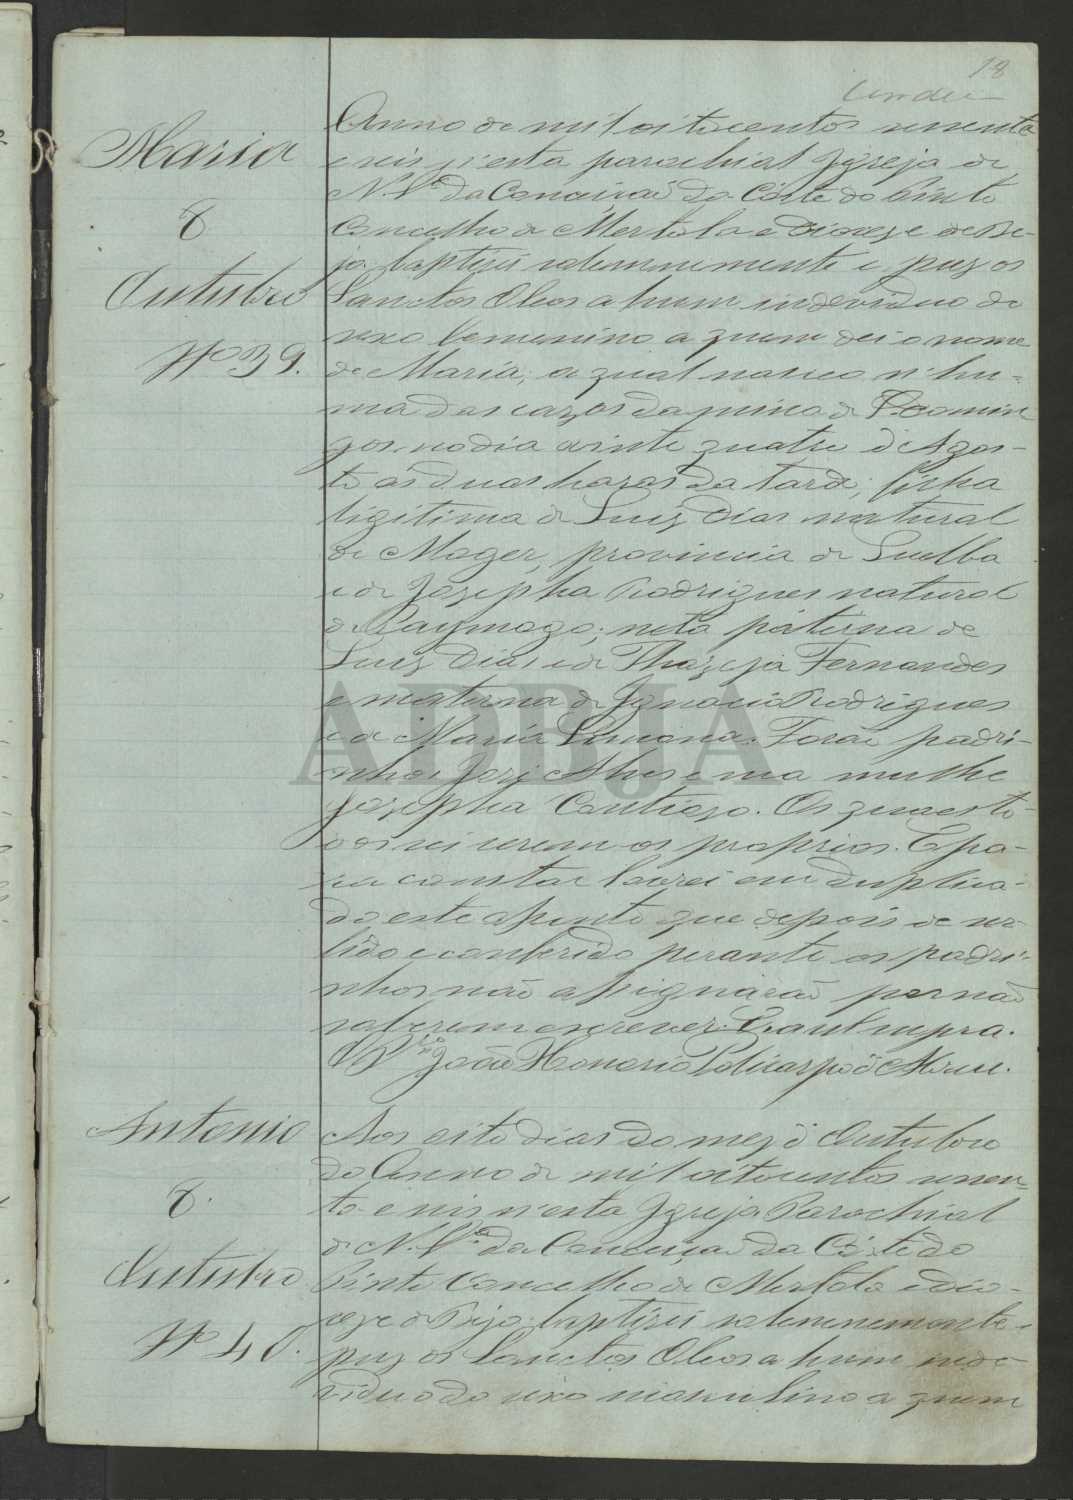 18
Maria
8
Outubro
Nº 39.
Anno de mil oitocentos sesenta
e seis n'esta parochial Igreja de
N. Srª da Conceicão da Côrte do Pinto
Concelho de Mertola e Diocese de Be-
ja baptisei solemnemente e puz os
Sanctos Oleos a hum individuo do
sexo femenino a quem dei o nome
de Maria, a qual nasceo n'hu-
ma das cazas da mina de S. Domin
gos no dia vinte quatro d'Agos-
to ás duas horas da tarde; filha
ligitima de Luiz Dias natural
de Moger, provincia de Huelba
e de Josepha Rodrigues natural
de Paymogo; neta paterna de
Luiz Dias e de Thereza Fernandes
e materna de Ignacio Rodrigues
e de Maria Simona. Forão padri-
nhos José Alves e sua mulhe
Josepha Os quaes to-
dos sei serem os proprios. E pa-
ra constar lavrei em duplica-
do este assento que depois de ser
lido e conferido perante os padri-
nhos não assignárão por não
saberem escrever. Era ut supra.
O P. João Honorio Policarpo
Antonio
8.
Outubro
Nº 40.
Aos oito dias do mez d'Outubro
do Anno de mil oitocentos sesen-
ta e seis n'esta Igreja Parochial
de N. Srª da Conceição da Côrte do
Pinto Concelho de Mertola e dio-
cese de Beja baptisei solemnemente e
puz os Sanctos Oleos a hum indi-
viduo do sexo masculino a quem
ADBJA